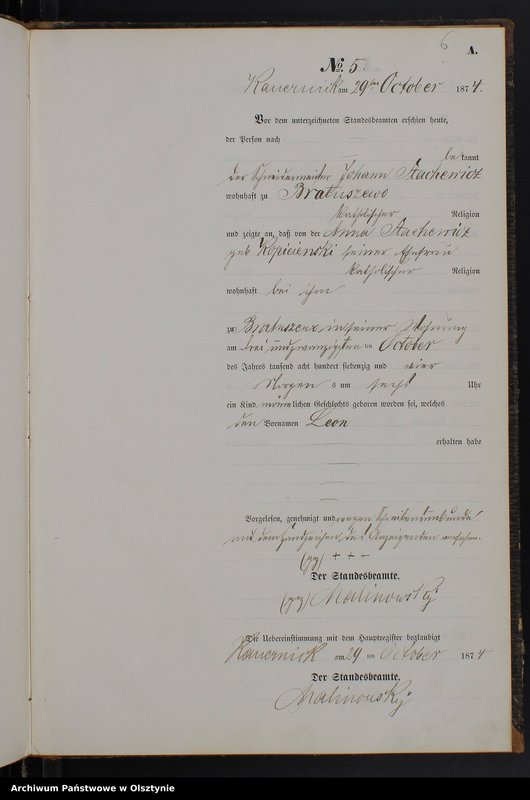 6
A.
No. 5.
Kauernick am 29ten October 1874.
Vor dem unterzeichneten Standesbeamten erschien heute,
der Person nach
bekannt
der Schneidermeister Johann Stachewicz
wohnhaft zu Bratuszewo
katholischer Religion
und zeigte an, daß von der Anna Stachewicz
geb Kopicienski seiner Ehefrau
katholischer Religion
wohnhaft bei ihm
zu Bratuszewo in seiner Wohnung
am drei und zwanzigsten ten October
des Jahres tausend acht hundert siebenzig und vier
Morgens um sechs Uhr
ein Kind männlichen Geschlechts geboren worden sei, welches
den Vornamen Leon
erhalten habe
Vorgelesen, genehmigt und wegen Schreibensunkunde
mit dem Handzeichen des Anzeigenden versehen.
(gez) + + +
Der Standesbeamte.
(gez) Malinowsky
Die Uebereinstimmung mit dem Hauptregister beglaubigt
Kauernick am 29 ten October 1874
Der Standesbeamte.
Malinowsky
Archiwum Państwowe w Olsztynie